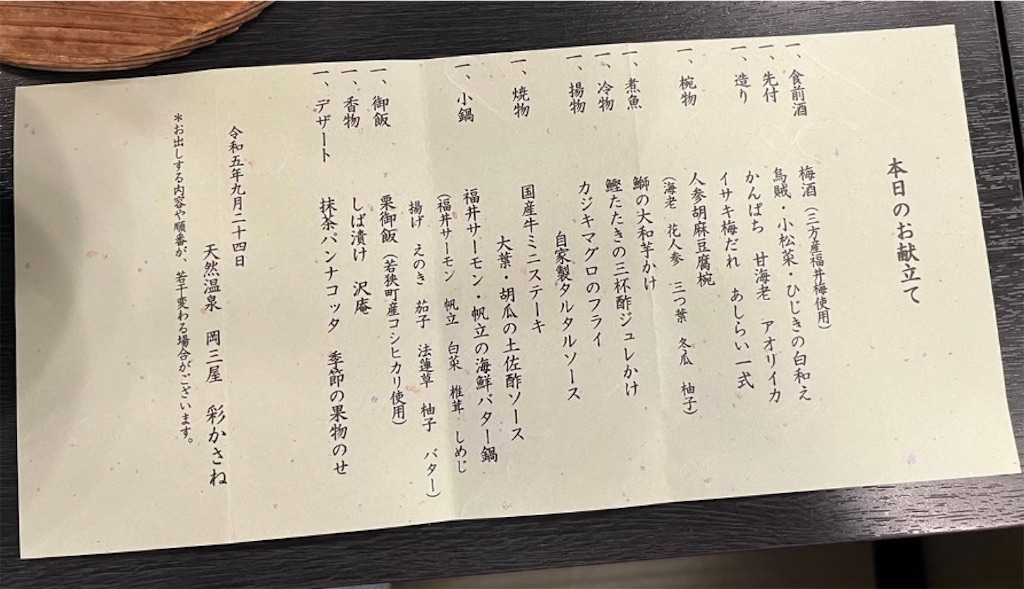 本日のお献立て
一、食前酒　梅酒（三方産福井梅使用）
一、先付　烏賊・小松菜・ひじきの白和え
一、造り　かんぱち　甘海老　アオリイカ
イサキ梅だれ　あしらい一式
一、椀物　人参胡麻豆腐椀
（海老　花人参　三つ葉　冬瓜　柚子）
一、煮魚　鰤の大和芋かけ
一、冷物　鰹たたきの三杯酢ジュレかけ
一、揚物　カジキマグロのフライ
自家製タルタルソース
一、焼物　国産牛ミニステーキ
大葉・胡瓜の土佐酢ソース
一、小鍋　福井サーモン・帆立の海鮮バター鍋
（福井サーモン　帆立　白菜　椎茸　しめじ
揚げ　えのき　茄子　法蓮草　柚子　バター）
一、御飯　栗御飯（若狭町産コシヒカリ使用）
一、香物　しば漬け　沢庵
一、デザート　抹茶パンナコッタ　季節の果物のせ
令和五年九月二十四日
天然温泉　岡三屋　彩かさね
＊お出しする内容や順番が、若干変わる場合がございます。